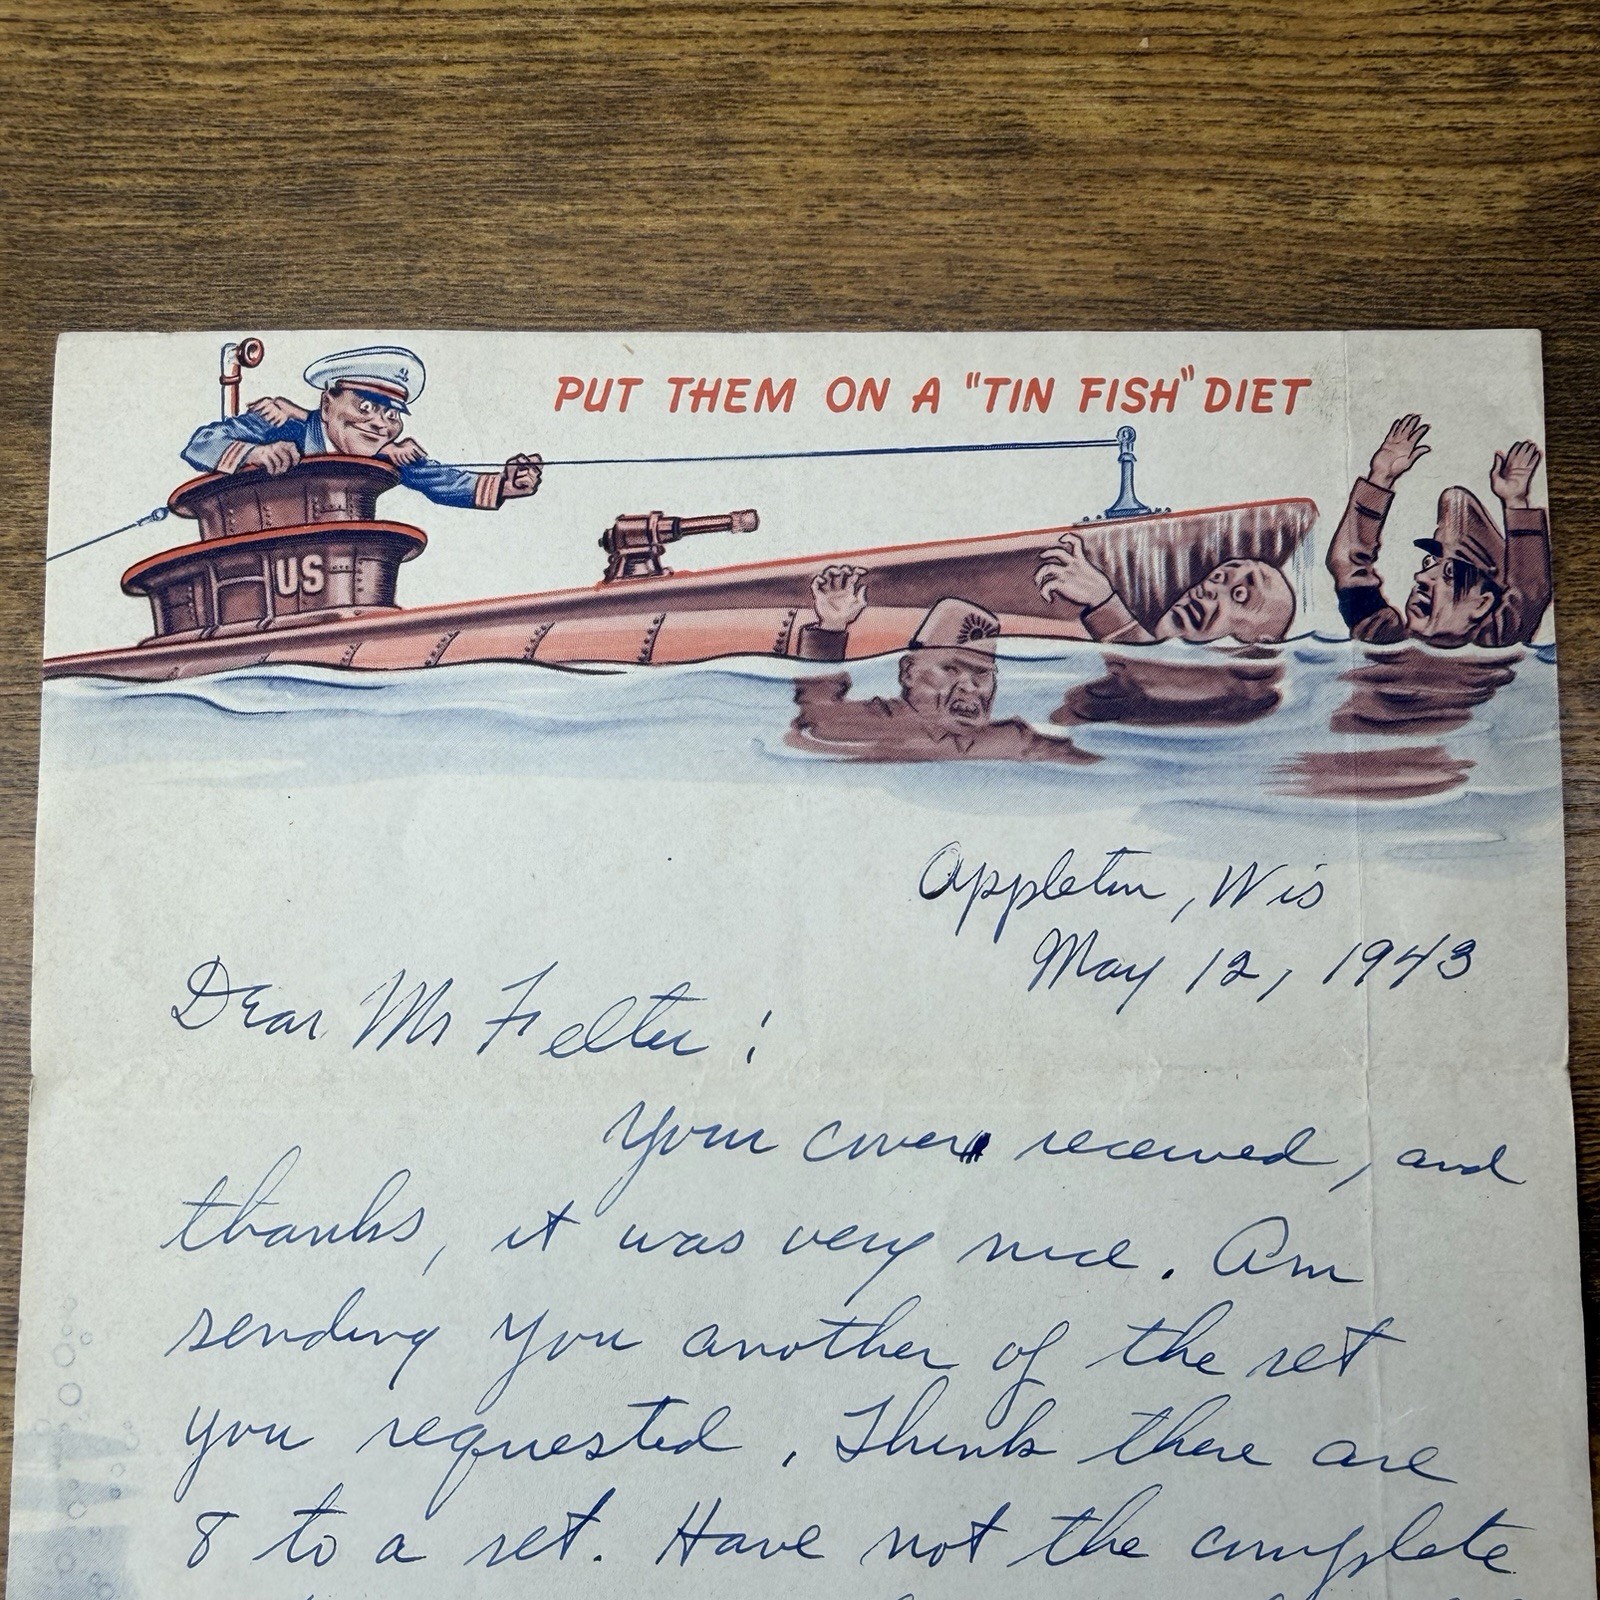 PUT THEM ON A "TIN FISH" DIET
US
Appleton, Wis
May 12, 1943
Dear Mr Felter:
Your cover received, and
thanks, it was very nice. Am
sending you another of the set
you requested. Think there are
8 to a set. Have not the complete